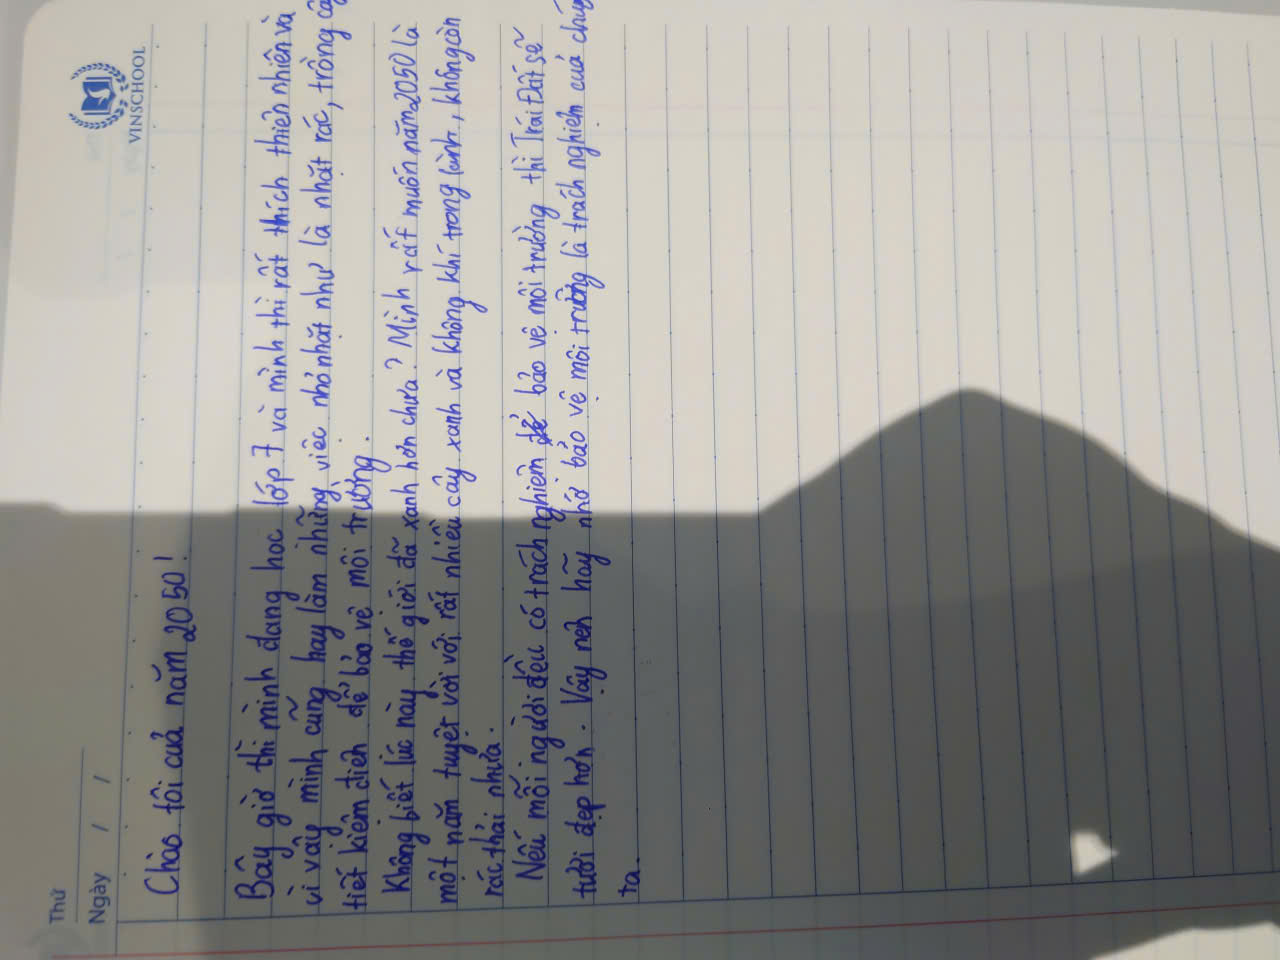 VINSCHOOL
Thứ
Ngày / /
Chào tôi của năm 2050!
Bây giờ thì mình đang học lớp 7 và mình thì rất thích thiên nhiên và
vì vậy mình cũng hay làm những việc nhỏ nhặt như là nhặt rác, trồng
tiết kiệm điện để bảo vệ môi trường.
Không biết lúc này thế giới đã xanh hơn chưa? Mình rất muốn năm 2050 là
một năm tuyệt vời với rất nhiều cây xanh và không khí trong lành, không còn
rác thải nhựa.
Nếu mỗi người đều có trách nghiệm để bảo vệ môi trường thì Trái Đất sẽ
tươi đẹp hơn. Vậy nên hãy nhớ bảo vệ môi trường là trách nghiệm của
ta.